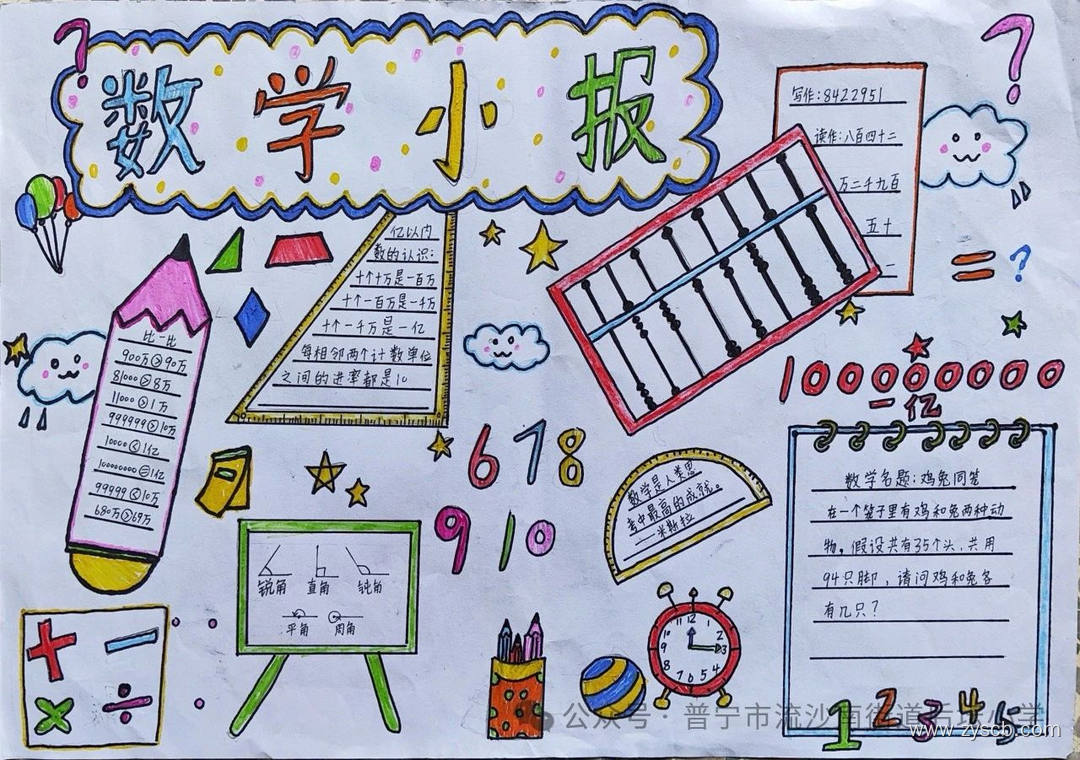 ?
数学小报
?
写作:8422951
读作:八百四十二
万二千九百
五十
二
= ?
亿以内
数的认识:
十个十万是一百万
十个一百万是一千万
十个一千万是一亿
每相邻两个计数单位
之间的进率都是10
比一比
900万>90万
81000>8万
11000>1万
999999>10万
10000<1亿
100000000=1亿
99999<10万
680万>69万
100000000
一亿
6 7 8
9 10
数学是人类思
考中最高的成就。
——米斯拉
数学名题:鸡兔同笼
在一个笼子里有鸡和兔两种动
物。假设共有35个头,共用
94只脚,请问鸡和兔各
有几只?
锐角 直角 钝角
平角 周角
+ −
× ÷
12 1 2 3 4 5 6 7 8 9 10 11
1 2 3 4 5
公众号·普宁市流沙南街道后坛小学
www.zyscb.com